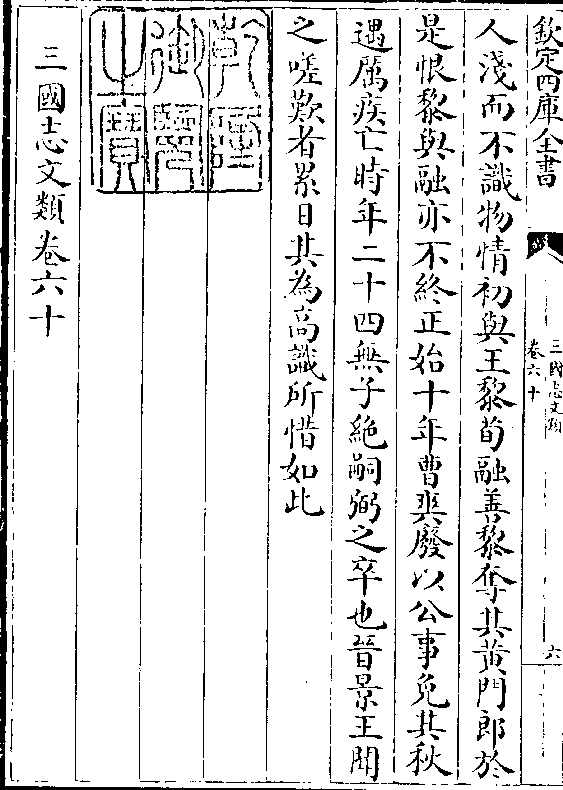 欽定四庫全書
三國志文類
卷六十
六
人淺而不識物情初與王黎荀融善黎奪其黃門郎於
是恨黎與融亦不終正始十年曹爽廢以公事免其秋
遇厲疾亡時年二十四無子絶嗣弼之卒也晉景王聞
之嗟歎者累日其為高識所惜如此
乾隆御覽之寶
三國志文類卷六十